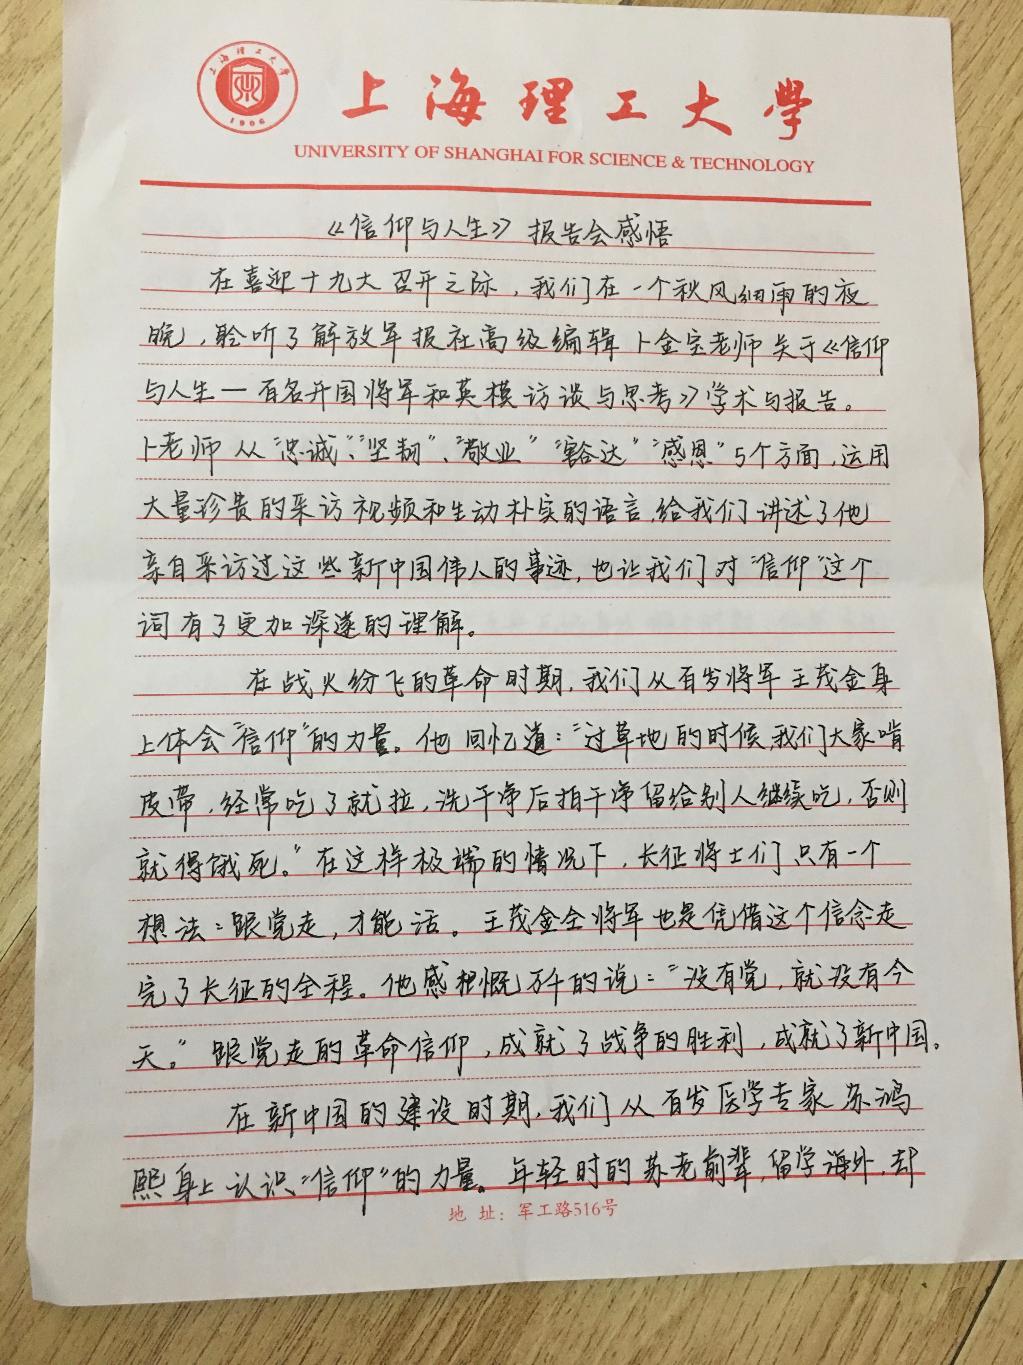 上海理工大学
1906
上海理工大學
UNIVERSITY OF SHANGHAI FOR SCIENCE & TECHNOLOGY
《信仰与人生》报告会感悟
在喜迎十九大召开之际，我们在一个秋风细雨的夜
晚，聆听了解放军报社高级编辑卜金宝老师关于《信仰
与人生—百名开国将军和英模访谈与思考》学术与报告。
卜老师从“忠诚”、“坚韧”、“敬业”“豁达”“感恩”5个方面，运用
大量珍贵的采访视频和生动朴实的语言，给我们讲述了他
亲自采访过这些新中国伟人的事迹，也让我们对“信仰”这个
词有了更加深邃的理解。
在战火纷飞的革命时期，我们从百岁将军王茂全身
上体会“信仰”的力量。他回忆道：“过草地的时候，我们大家啃
皮带，经常吃了就拉，洗干净后拍干净留给别人继续吃，否则
就得饿死。”在这样极端的情况下，长征将士们只有一个
想法：跟党走，才能活。王茂金全将军也是凭借这个信念走
完了长征的全程。他感慨万千的说：“没有党，就没有今
天。”跟党走的革命信仰，成就了战争的胜利，成就了新中国。
在新中国的建设时期，我们从百岁医学专家苏鸿
熙身上认识“信仰”的力量。年轻时的苏老前辈，留学海外，却
地址：军工路516号